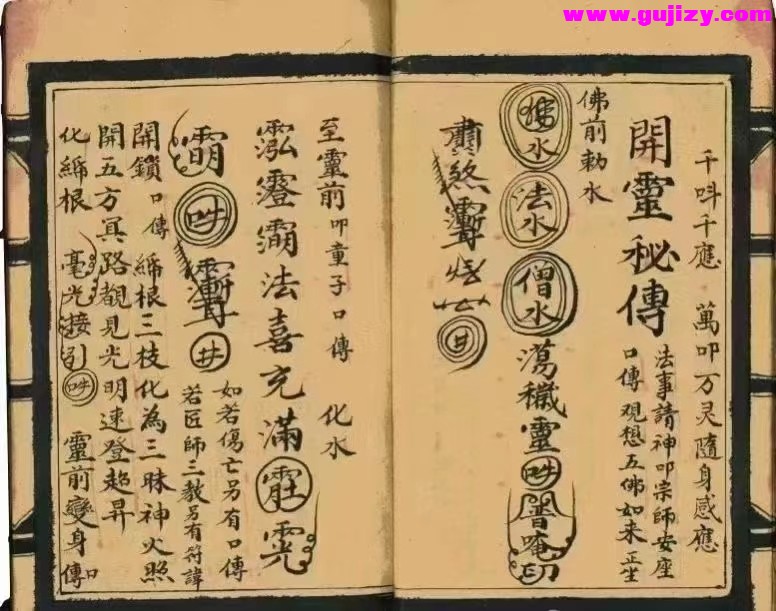 www.gujizy.com
千呌千應 萬叩万灵隨身感應
開靈秘傳
法事請神叩宗師安座
口傳 观想五佛如来 正坐
佛前勅水
佛水 法水 僧水 蕩穢靈 吽 普唵印
煞 井
至靈前 叩童子口傳 化水
法喜充滿
吽 井
如若傷亡另有口傳
若匠師三教另有符諱
開鎖 口傳 綿根三枝化為三昧神火照
開五方冥路覩見光明速登超昇
化綿根 毫光接引 吽 靈前變身 口傳